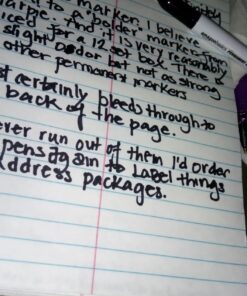 marker. I believe
to a bolder marker than
And it is very reasonably
for a 12 set box. There is
slight odor but not as strong
other permanent markers
certainly bleeds through to
back of the page.
ever run out of them I'd order
pens again to Label things
address packages.